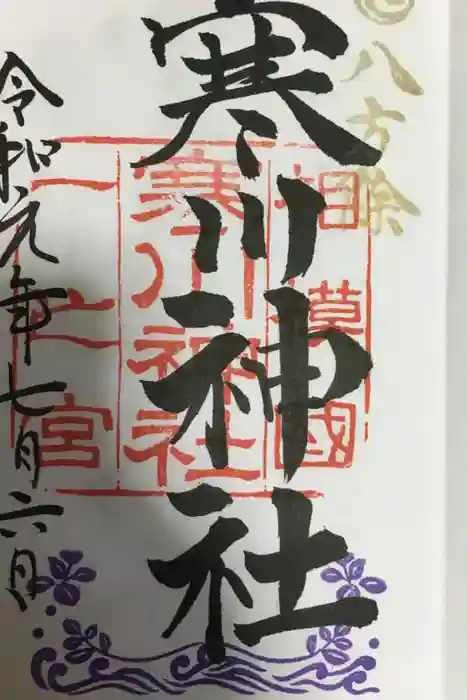 八方除
相模國
寒川神社
一之宮
寒川神社
令和元年七月六日